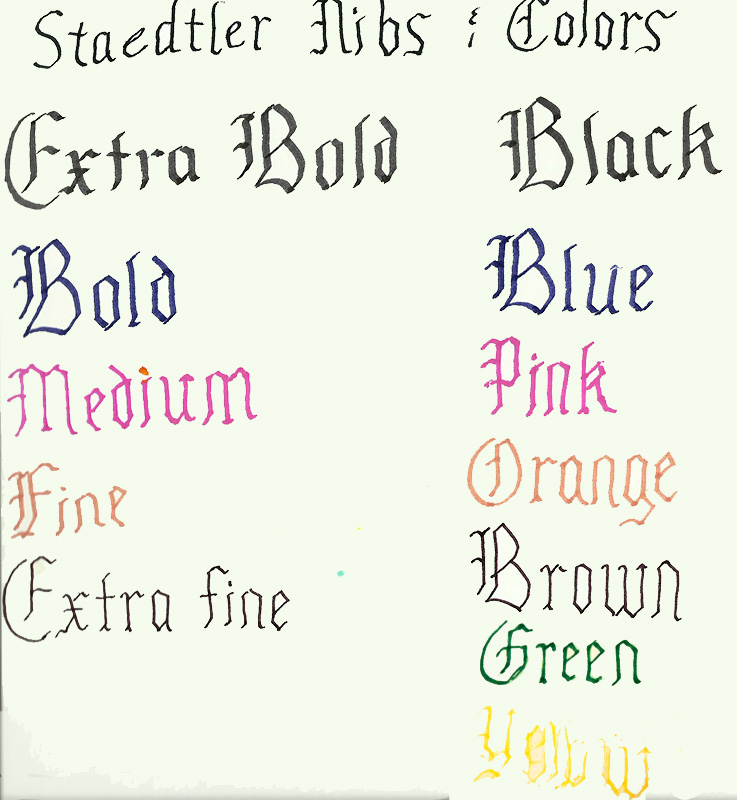 Staedtler Nibs & Colors
Extra Bold Black
Bold Blue
Medium Pink
Fine Orange
Extra fine Brown
Green
Yellow